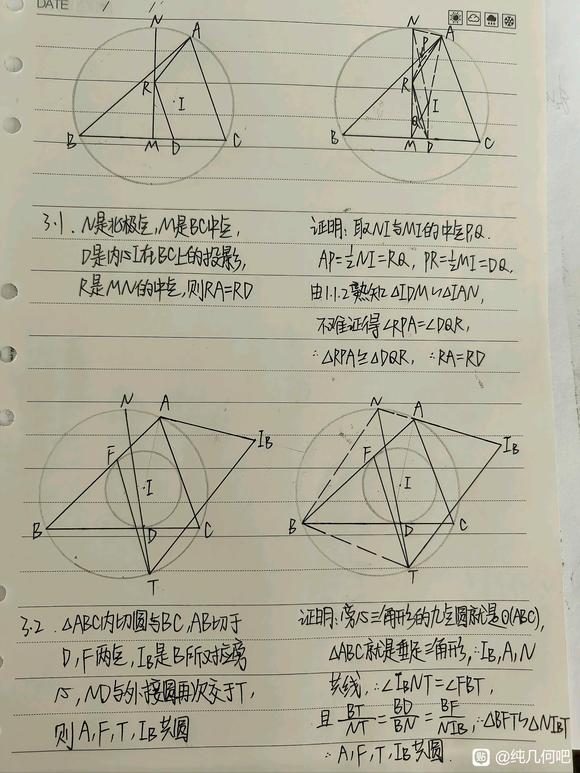 DATE / /
N A
R
I
B M D C
N A
P
R
I
Q
B M D C
3.1. N是北极点, M是BC中点,
D是内心I在BC上的投影,
R是MN的中点, 则RA=RD
证明: 取NI与MI的中点P,Q.
AP=½NI=RQ, PR=½MI=DQ,
由1.1.2熟知△IDM∽△IAN,
不难证得∠RPA=∠DQR,
∴△RPA≌△DQR, ∴RA=RD
N A
I_B
F
I
B D C
T
N A
I_B
F
I
B D C
T
3.2. △ABC内切圆与BC, AB切于
D, F两点, I_B是B所对应旁
心, ND与外接圆再次交于T,
则A, F, T, I_B共圆
证明: 旁心三角形的九点圆就是⊙(ABC),
△ABC就是垂足三角形, ∴I_B, A, N
共线, ∴∠I_BNT=∠FBT,
且 BT/NT = BD/BN = BF/NI_B, ∴△BFT∽△NI_BT
∴A, F, T, I_B共圆.
贴 @纯几何吧